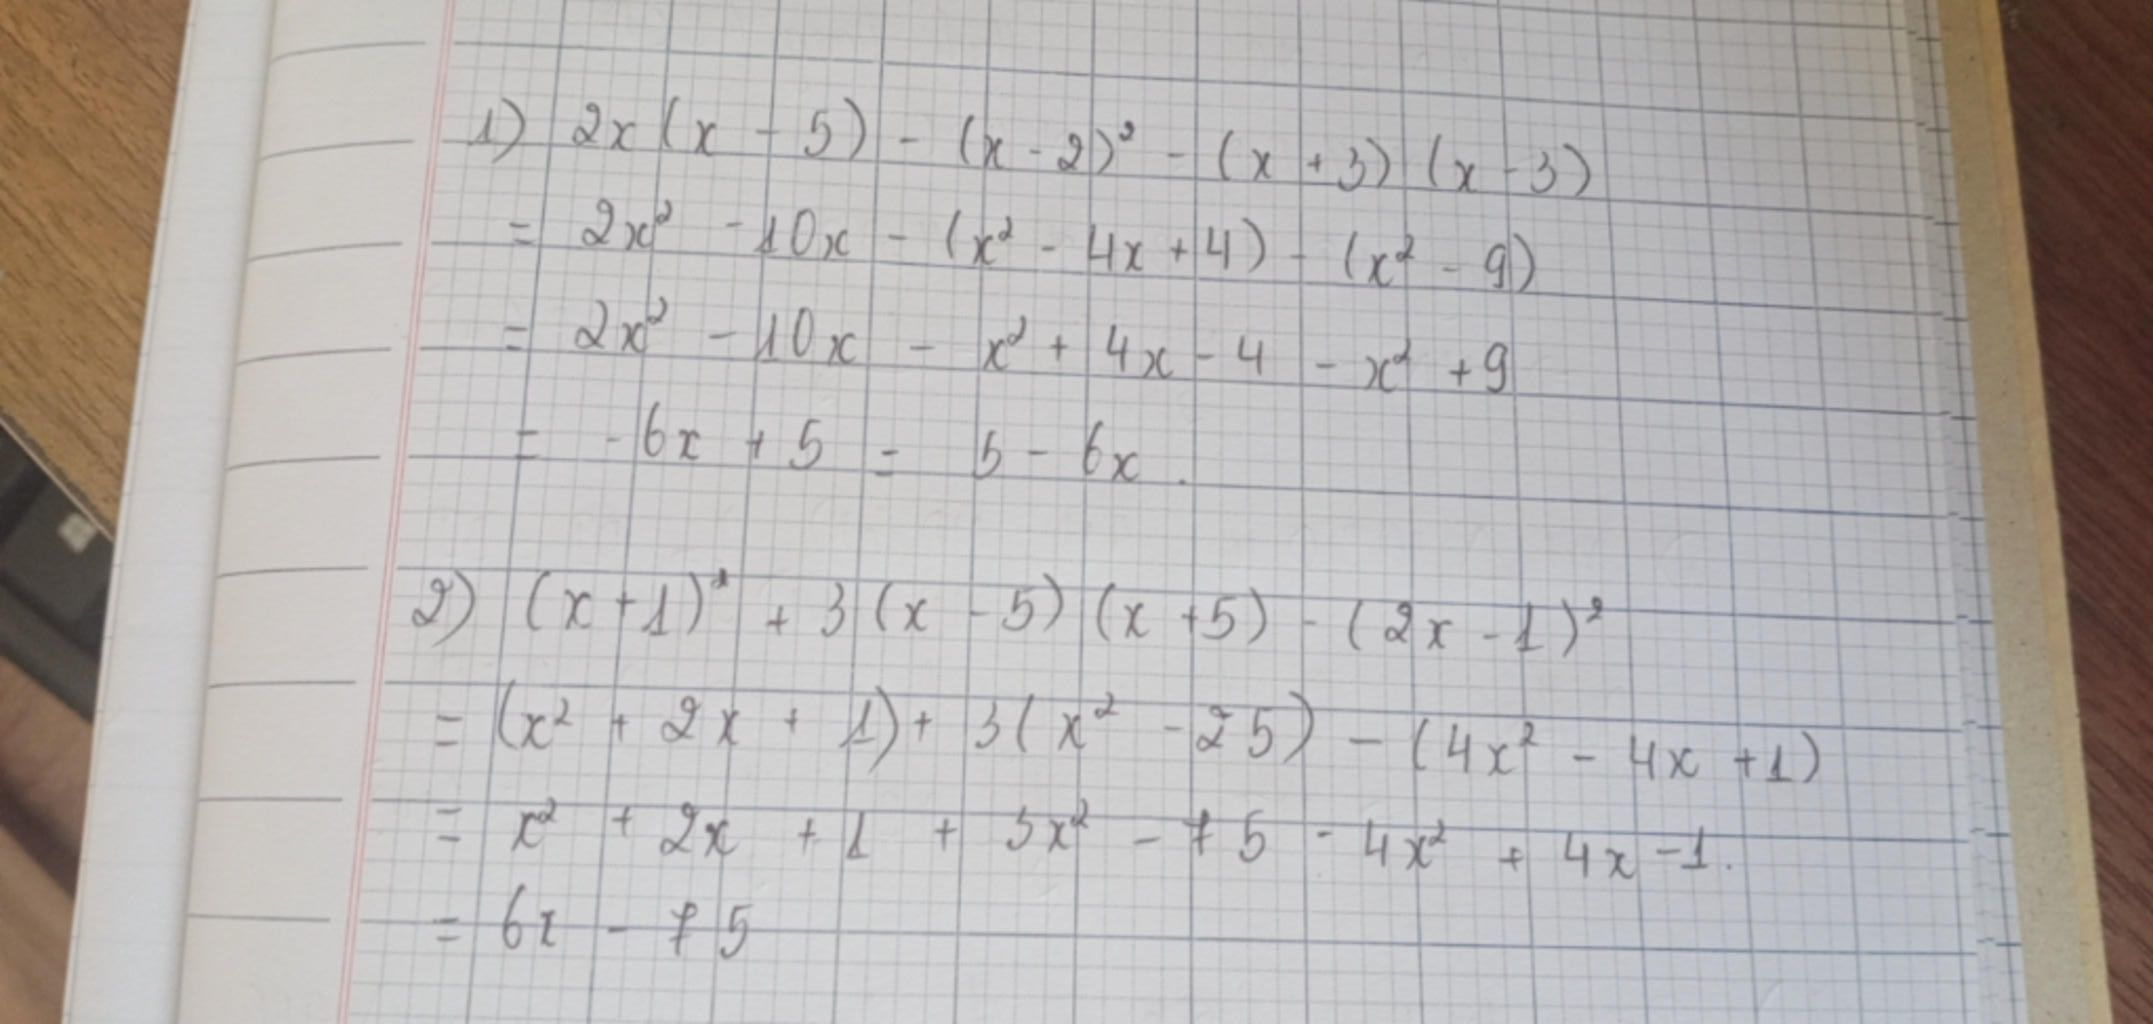 1) 2x(x - 5) - (x - 2)² - (x + 3)(x - 3)
= 2x² - 10x - (x² - 4x + 4) - (x² - 9)
= 2x² - 10x - x² + 4x - 4 - x² + 9
= - 6x + 5 = 5 - 6x.
2) (x + 1)² + 3(x - 5)(x + 5) - (2x - 1)²
= (x² + 2x + 1) + 3(x² - 25) - (4x² - 4x + 1)
= x² + 2x + 1 + 3x² - 75 - 4x² + 4x - 1.
= 6x - 75